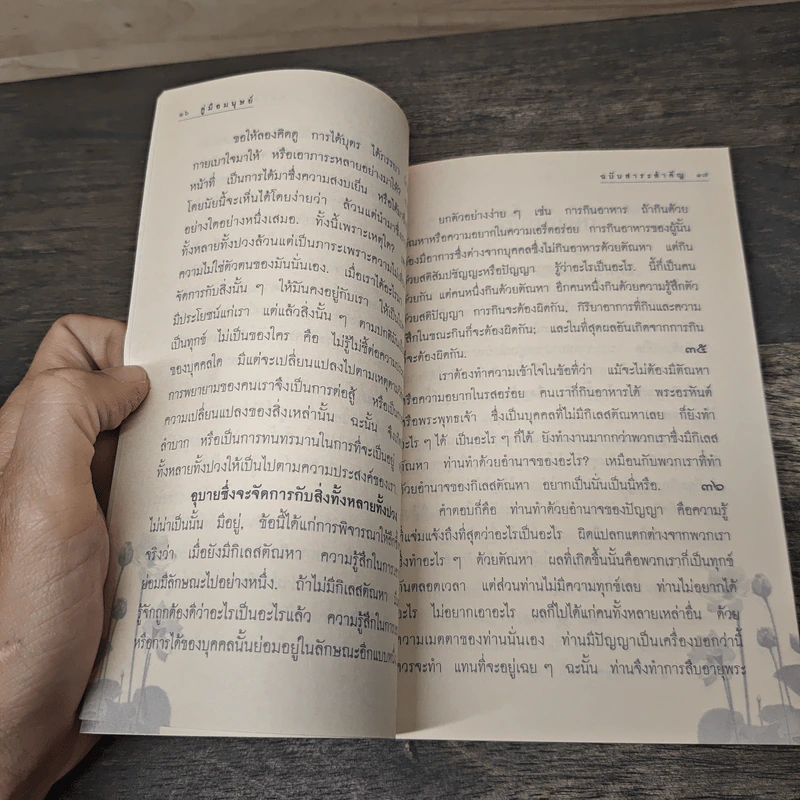 ๑๖ คู่มือมนุษย์
ขอให้ลองคิดดู การได้บุตร ได้ภรรยา
กายเบาใจมาให้ หรือเอาภาระหลายอย่างมาให้
หน้าที่ เป็นการได้มาซึ่งความสงบเย็น หรือได้
โดยนัยนี้จะเห็นได้โดยง่ายว่า ล้วนแต่นำมาซึ่ง
อย่างใดอย่างหนึ่งเสมอ. ทั้งนี้เพราะเหตุใด
ทั้งหลายทั้งปวงล้วนแต่เป็นภาระเพราะความ
ความไม่ใช่ตัวตนของมันนั่นเอง. เมื่อเราได้อะไร
จัดการกับสิ่งนั้น ๆ ให้มันคงอยู่กับเรา ให้
มีประโยชน์แก่เรา แต่แล้วสิ่งนั้น ๆ ตามปกติ
เป็นทุกข์ ไม่เป็นของใคร คือ ไม่รู้ไม่ชี้ต่อความ
ของบุคคลใด มีแต่จะเปลี่ยนแปลงไปตามเหตุตาม
การพยายามของคนเราจึงเป็นการต่อสู้ หรือ
ความเปลี่ยนแปลงของสิ่งเหล่านั้น ฉะนั้น
ลำบาก หรือเป็นการทนทรมานในการที่จะเป็นอยู่
ทั้งหลายทั้งปวงให้เป็นไปตามความประสงค์ของเรา
อุบายซึ่งจะจัดการกับสิ่งทั้งหลายทั้งปวง
ไม่น่าเป็นนั้น มีอยู่. ข้อนี้ได้แก่การพิจารณาให้
จริงว่า เมื่อยังมีกิเลสตัณหา ความรู้สึกในการ
ย่อมมีลักษณะไปอย่างหนึ่ง. ถ้าไม่มีกิเลสตัณหา
รู้จักถูกต้องดีว่าอะไรเป็นอะไรแล้ว ความรู้สึกในการ
หรือการได้ของบุคคลนั้นย่อมอยู่ในลักษณะอีกแบบ
ฉบับสาระสำคัญ ๑๗
ยกตัวอย่างง่าย ๆ เช่น การกินอาหาร ถ้ากินด้วย
ตัณหาหรือความอยากในความเอร็ดอร่อย การกินอาหารของผู้นั้น
ต้องมีอาการซึ่งต่างจากบุคคลซึ่งไม่กินอาหารด้วยตัณหา แต่กิน
ด้วยสติสัมปชัญญะหรือปัญญา รู้ว่าอะไรเป็นอะไร. นี้ก็เป็นคน
ด้วยกัน แต่คนหนึ่งกินด้วยตัณหา อีกคนหนึ่งกินด้วยความรู้สึกตัว
ด้วยสติปัญญา การกินจะต้องผิดกัน. กิริยาอาการที่กินและความ
รู้สึกในขณะกินก็จะต้องผิดกัน; และในที่สุดผลอันเกิดจากการกิน
จะต้องผิดกัน. ๓๕
เราต้องทำความเข้าใจในข้อที่ว่า แม้จะไม่ต้องมีตัณหา
หรือความอยากในรสอร่อย คนเราก็กินอาหารได้ พระอรหันต์
หรือพระพุทธเจ้า ซึ่งเป็นบุคคลที่ไม่มีกิเลสตัณหาเลย ก็ยังทำ
อะไร ๆ ได้ เป็นอะไร ๆ ก็ได้ ยังทำงานมากกว่าพวกเราซึ่งมีกิเลส
ตัณหา ท่านทำด้วยอำนาจของอะไร? เหมือนกับพวกเราที่ทำ
ด้วยอำนาจของกิเลสตัณหา อยากเป็นนั่นเป็นนี่หรือ. ๓๖
คำตอบก็คือ ท่านทำด้วยอำนาจของปัญญา คือความรู้
ที่แจ่มแจ้งถึงที่สุดว่าอะไรเป็นอะไร ผิดแปลกแตกต่างจากพวกเรา
ซึ่งทำอะไร ๆ ด้วยตัณหา ผลที่เกิดขึ้นนั้นคือพวกเราก็เป็นทุกข์
กันตลอดเวลา แต่ส่วนท่านไม่มีความทุกข์เลย ท่านไม่อยากได้
อะไร ไม่อยากเอาอะไร ผลก็ไปได้แก่คนทั้งหลายเหล่าอื่น ด้วย
ความเมตตาของท่านนั่นเอง ท่านมีปัญญาเป็นเครื่องบอกว่านี้
ควรจะทำ แทนที่จะอยู่เฉย ๆ ฉะนั้น ท่านจึงทำการสืบอายุพระ